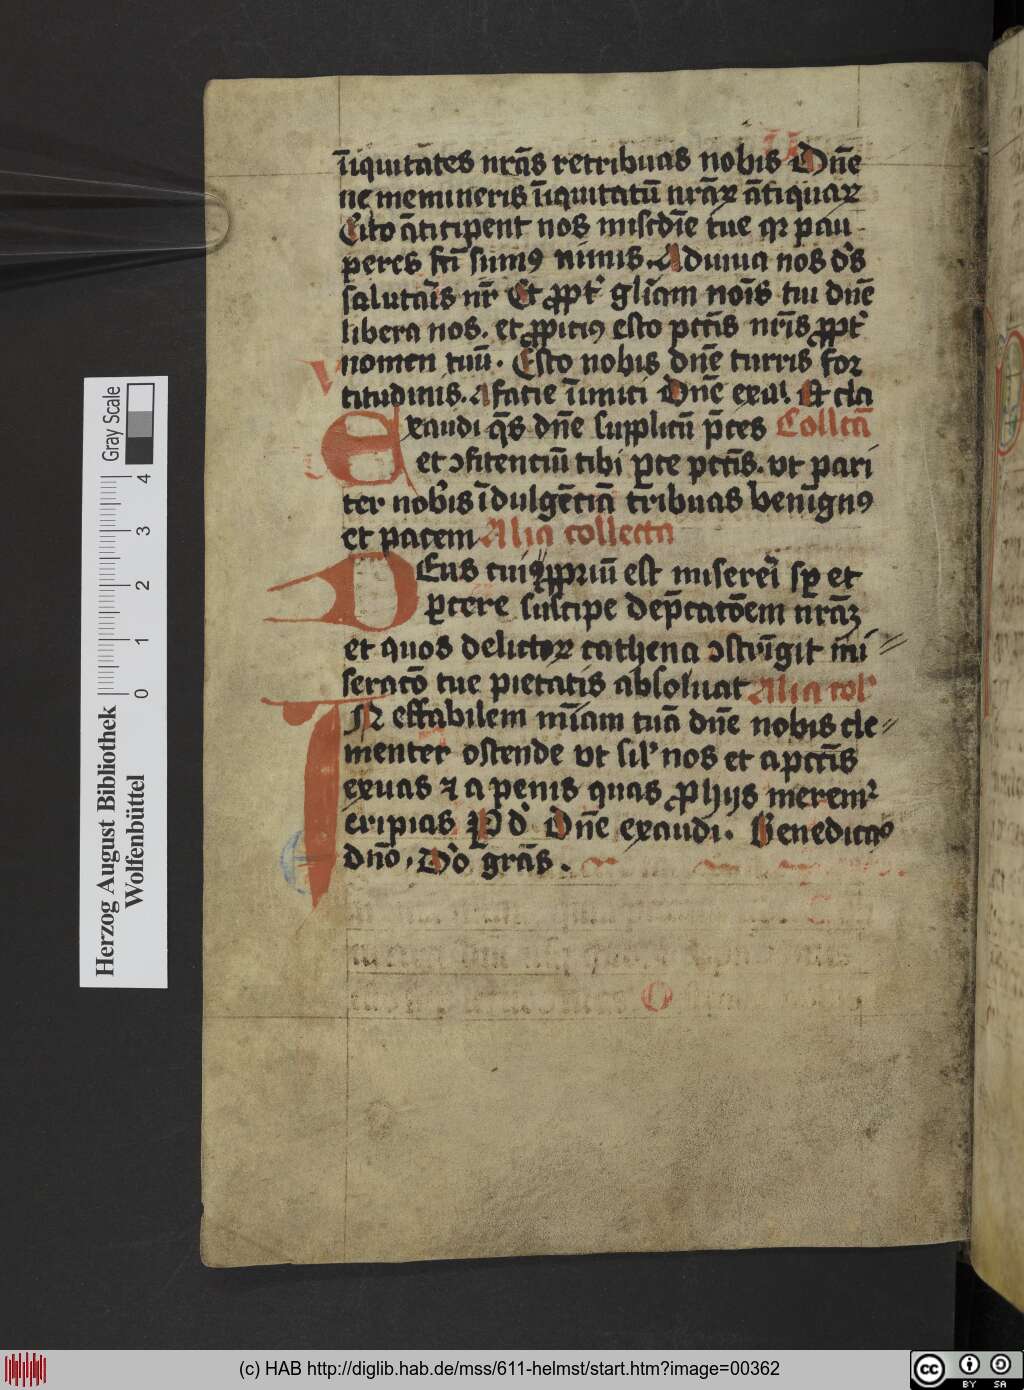 īiquitates nrās retribuas nobis Dnē
ne memineris īiquitatū nrāꝝ ātiquaꝝ
Cito āticipent nos miscdīe tue qꝛ pau
peres fcī sumꝯ nimis. Adiuua nos dˀs
salutaīs nr̄ Et ꝓpt̉ glīam noīs tui dnē
libera nos. et ꝓpiciꝯ esto pctīs nrīs ꝓpt̉
nomen tuū. Esto nobis dnē turris for
V
titudinis. A facie īimici Dnē exal Et cla
Exaudi q̄s dnē supplicū p̄ces Collcā
et ↄfitenciū tibi ꝑce pctīs. vt pari
ter nobis īdulgēciā tribuas benignꝯ
et pacem Alia collecta
DEus cui ꝓpriū est misereri sꝑ et
ꝑcere suscipe dep̄catōem nrāꝫ
et quos delictoꝝ cathena ↄstrīgit mi
seracō tue pietatis absoluat Alia colˀ
IN effabilem mīam tuā dnē nobis cle
menter ostende vt silˀ nos et a pctīs
exuas ⁊ a penis quas ꝓ hijs meremꝛ
eripias P d Dnē exaudi. Benedicaꝰ
dnō. Dō grās.
Herzog August Bibliothek
Wolfenbüttel
0 1 2 3 4
Gray Scale
(c) HAB http://diglib.hab.de/mss/611-helmst/start.htm?image=00362
cc BY SA